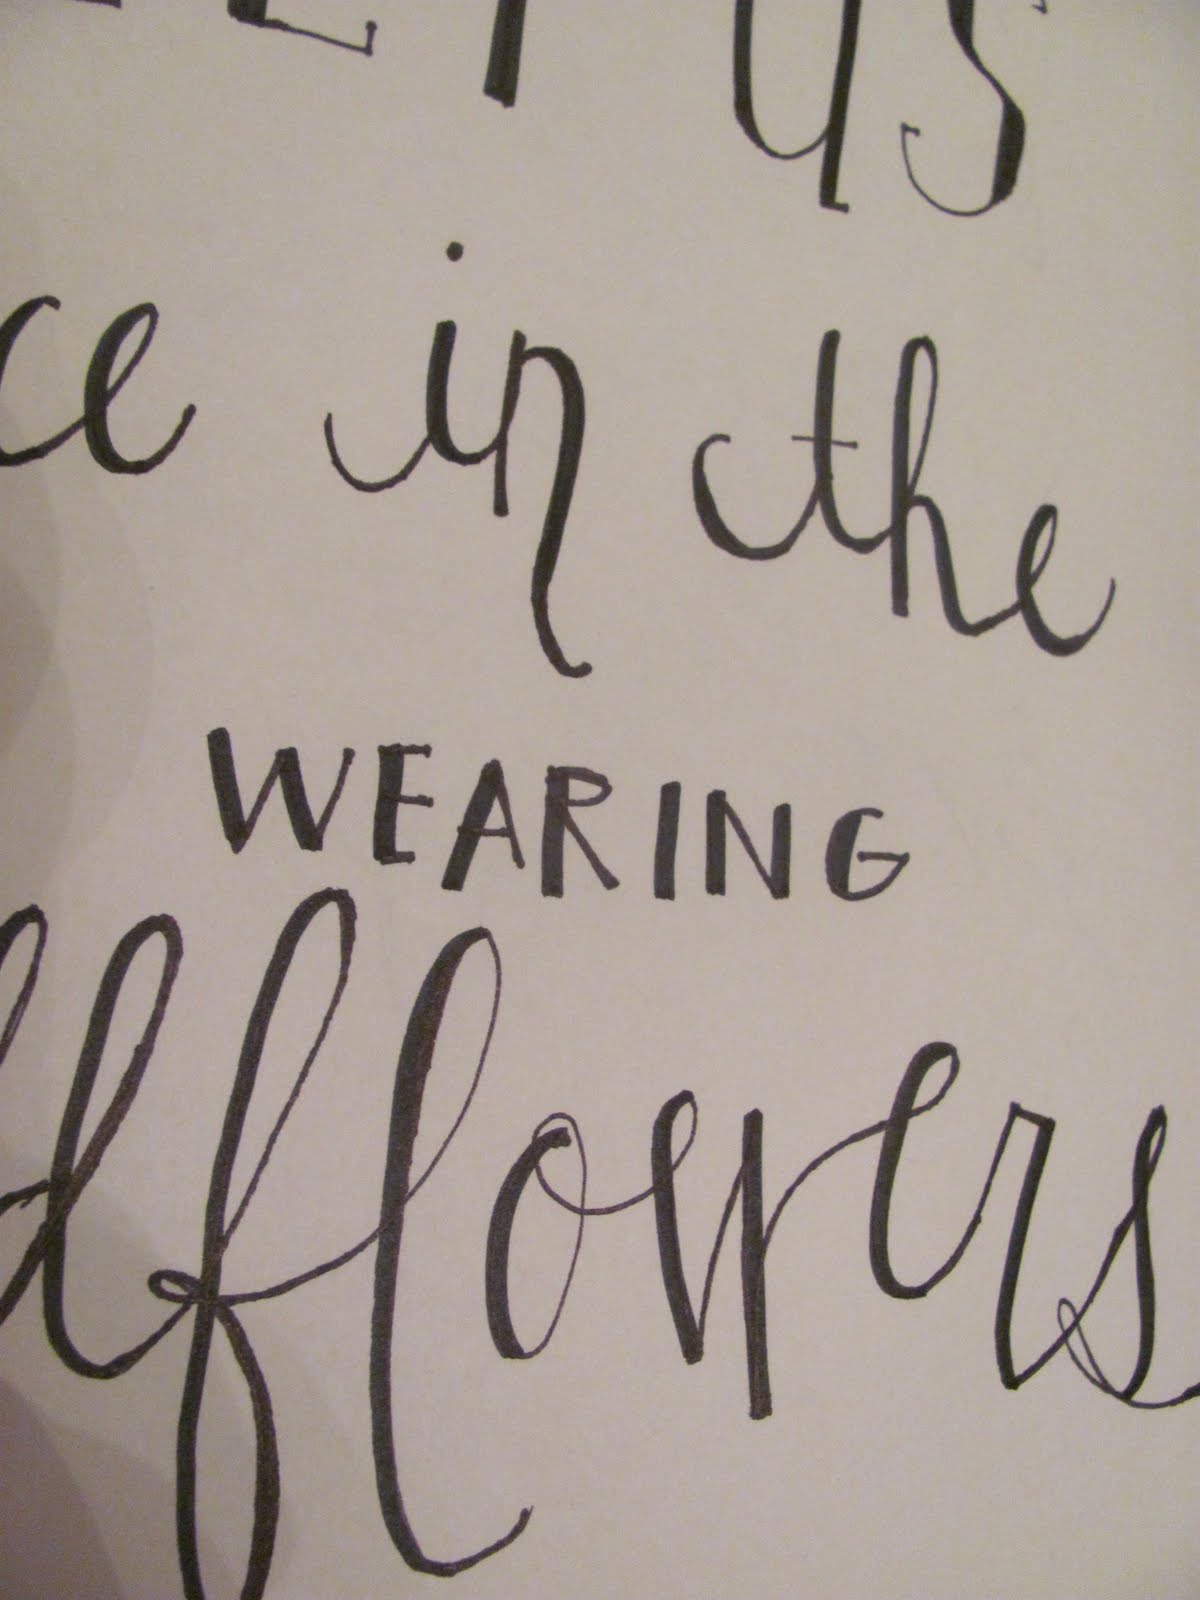 LET US
ce in the
WEARING
ldflowers